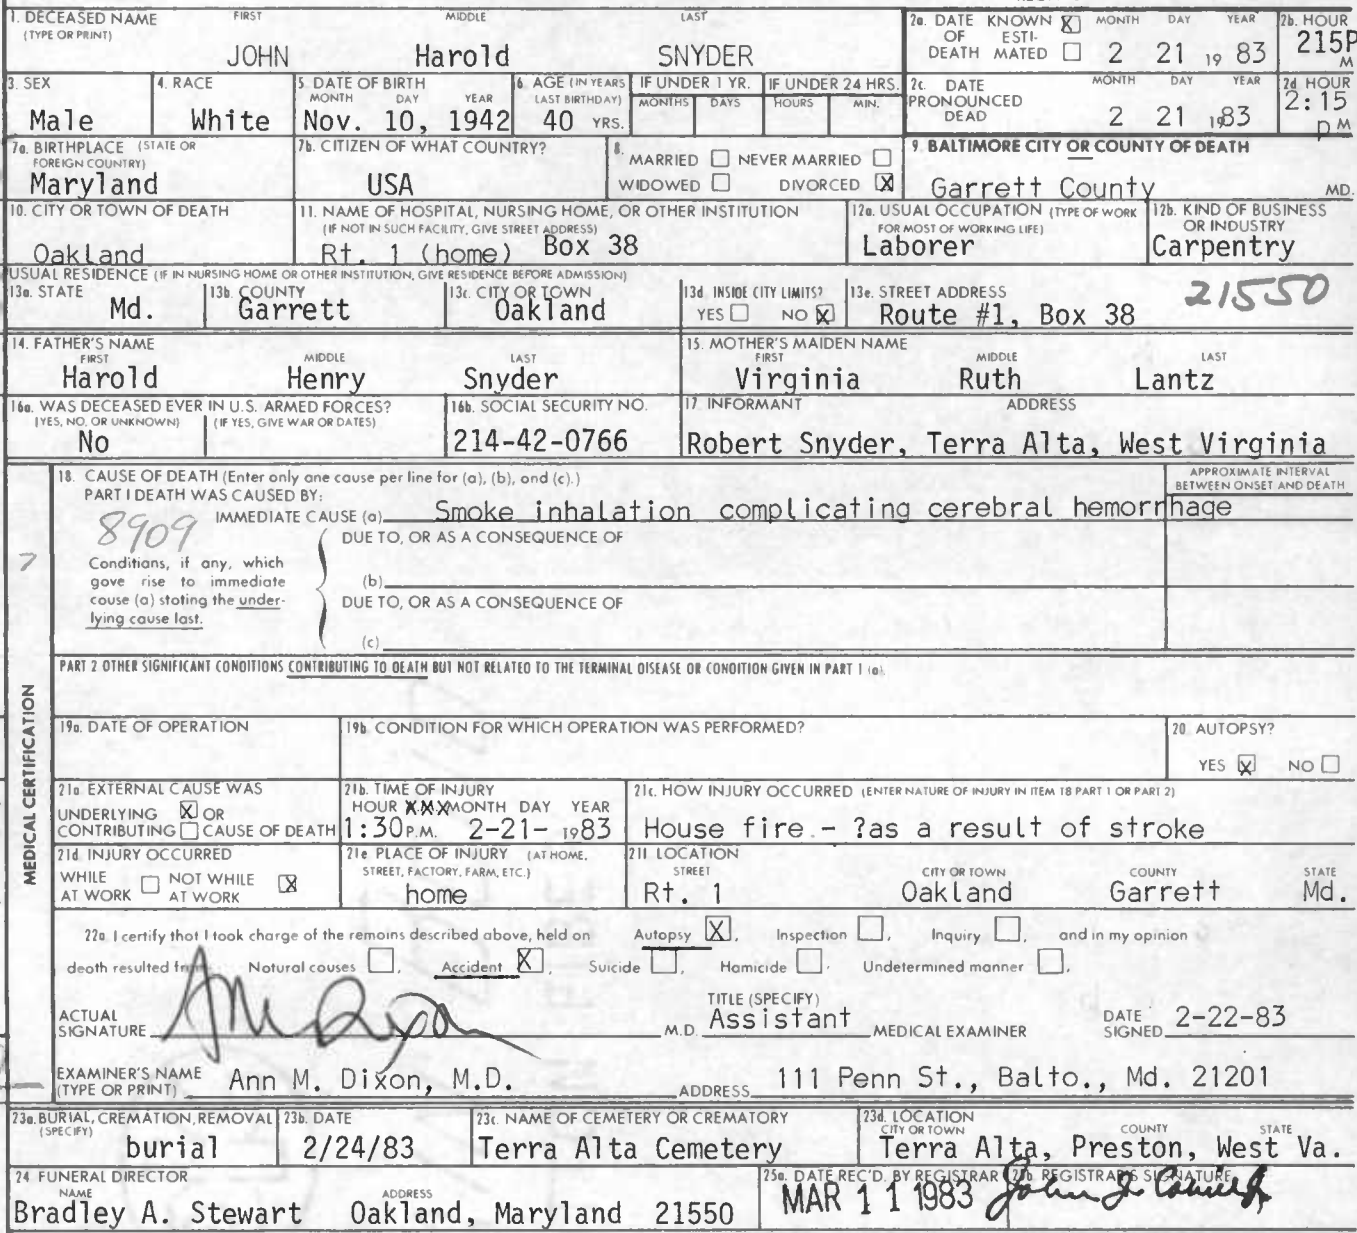 1. DECEASED NAME FIRST MIDDLE LAST
(TYPE OR PRINT)
JOHN Harold SNYDER
2a. DATE KNOWN [X] MONTH DAY YEAR
OF ESTI-
DEATH MATED [ ] 2 21 19 83
2b. HOUR
215P M
3. SEX
Male
4. RACE
White
5. DATE OF BIRTH
MONTH DAY YEAR
Nov. 10, 1942
6. AGE (IN YEARS
LAST BIRTHDAY)
40 YRS.
IF UNDER 1 YR. IF UNDER 24 HRS.
MONTHS DAYS HOURS MIN.
2c. DATE MONTH DAY YEAR
PRONOUNCED
DEAD 2 21 1983
2d HOUR
2:15
p M
7a. BIRTHPLACE (STATE OR
FOREIGN COUNTRY)
Maryland
7b. CITIZEN OF WHAT COUNTRY?
USA
8.
MARRIED [ ] NEVER MARRIED [ ]
WIDOWED [ ] DIVORCED [X]
9. BALTIMORE CITY OR COUNTY OF DEATH
Garrett County MD.
10. CITY OR TOWN OF DEATH
Oakland
11. NAME OF HOSPITAL, NURSING HOME, OR OTHER INSTITUTION
(IF NOT IN SUCH FACILITY, GIVE STREET ADDRESS)
Rt. 1 (home) Box 38
12a. USUAL OCCUPATION (TYPE OF WORK
FOR MOST OF WORKING LIFE)
Laborer
12b. KIND OF BUSINESS
OR INDUSTRY
Carpentry
USUAL RESIDENCE (IF IN NURSING HOME OR OTHER INSTITUTION, GIVE RESIDENCE BEFORE ADMISSION)
13a. STATE
Md.
13b. COUNTY
Garrett
13c. CITY OR TOWN
Oakland
13d. INSIDE CITY LIMITS?
YES [ ] NO [X]
13e. STREET ADDRESS
21550
Route #1, Box 38
14. FATHER'S NAME
FIRST MIDDLE LAST
Harold Henry Snyder
15. MOTHER'S MAIDEN NAME
FIRST MIDDLE LAST
Virginia Ruth Lantz
16a. WAS DECEASED EVER IN U.S. ARMED FORCES?
(YES, NO, OR UNKNOWN) (IF YES, GIVE WAR OR DATES)
No
16b. SOCIAL SECURITY NO.
214-42-0766
17. INFORMANT ADDRESS
Robert Snyder, Terra Alta, West Virginia
MEDICAL CERTIFICATION
18. CAUSE OF DEATH (Enter only one cause per line for (a), (b), and (c).)
PART I DEATH WAS CAUSED BY:
APPROXIMATE INTERVAL
BETWEEN ONSET AND DEATH
8909
IMMEDIATE CAUSE (a) Smoke inhalation complicating cerebral hemorrhage
DUE TO, OR AS A CONSEQUENCE OF
7
Conditions, if any, which
gave rise to immediate
cause (a) stating the under-
lying cause last.
(b)
DUE TO, OR AS A CONSEQUENCE OF
(c)
PART 2 OTHER SIGNIFICANT CONDITIONS CONTRIBUTING TO DEATH BUT NOT RELATED TO THE TERMINAL DISEASE OR CONDITION GIVEN IN PART 1 (a).
19a. DATE OF OPERATION
19b. CONDITION FOR WHICH OPERATION WAS PERFORMED?
20. AUTOPSY?
YES [X] NO [ ]
21a. EXTERNAL CAUSE WAS
UNDERLYING [X] OR
CONTRIBUTING [ ] CAUSE OF DEATH
21b. TIME OF INJURY
HOUR MONTH DAY YEAR
1:30 P.M. 2-21- 1983
21c. HOW INJURY OCCURRED (ENTER NATURE OF INJURY IN ITEM 18 PART 1 OR PART 2)
House fire - ?as a result of stroke
21d. INJURY OCCURRED
WHILE [ ] NOT WHILE [X]
AT WORK AT WORK
21e. PLACE OF INJURY (AT HOME,
STREET, FACTORY, FARM, ETC.)
home
21f. LOCATION
STREET CITY OR TOWN COUNTY STATE
Rt. 1 Oakland Garrett Md.
22a. I certify that I took charge of the remains described above, held on Autopsy [X], Inspection [ ], Inquiry [ ], and in my opinion
death resulted from Natural causes [ ], Accident [X], Suicide [ ], Homicide [ ], Undetermined manner [ ].
ACTUAL
SIGNATURE M.D.
TITLE (SPECIFY)
Assistant MEDICAL EXAMINER
DATE
SIGNED 2-22-83
EXAMINER'S NAME
(TYPE OR PRINT) Ann M. Dixon, M.D.
ADDRESS 111 Penn St., Balto., Md. 21201
23a. BURIAL, CREMATION, REMOVAL
(SPECIFY)
burial
23b. DATE
2/24/83
23c. NAME OF CEMETERY OR CREMATORY
Terra Alta Cemetery
23d. LOCATION
CITY OR TOWN COUNTY STATE
Terra Alta, Preston, West Va.
24 FUNERAL DIRECTOR
NAME ADDRESS
Bradley A. Stewart Oakland, Maryland 21550
25a. DATE REC'D. BY REGISTRAR
MAR 11 1983
25b. REGISTRAR'S SIGNATURE
John J.